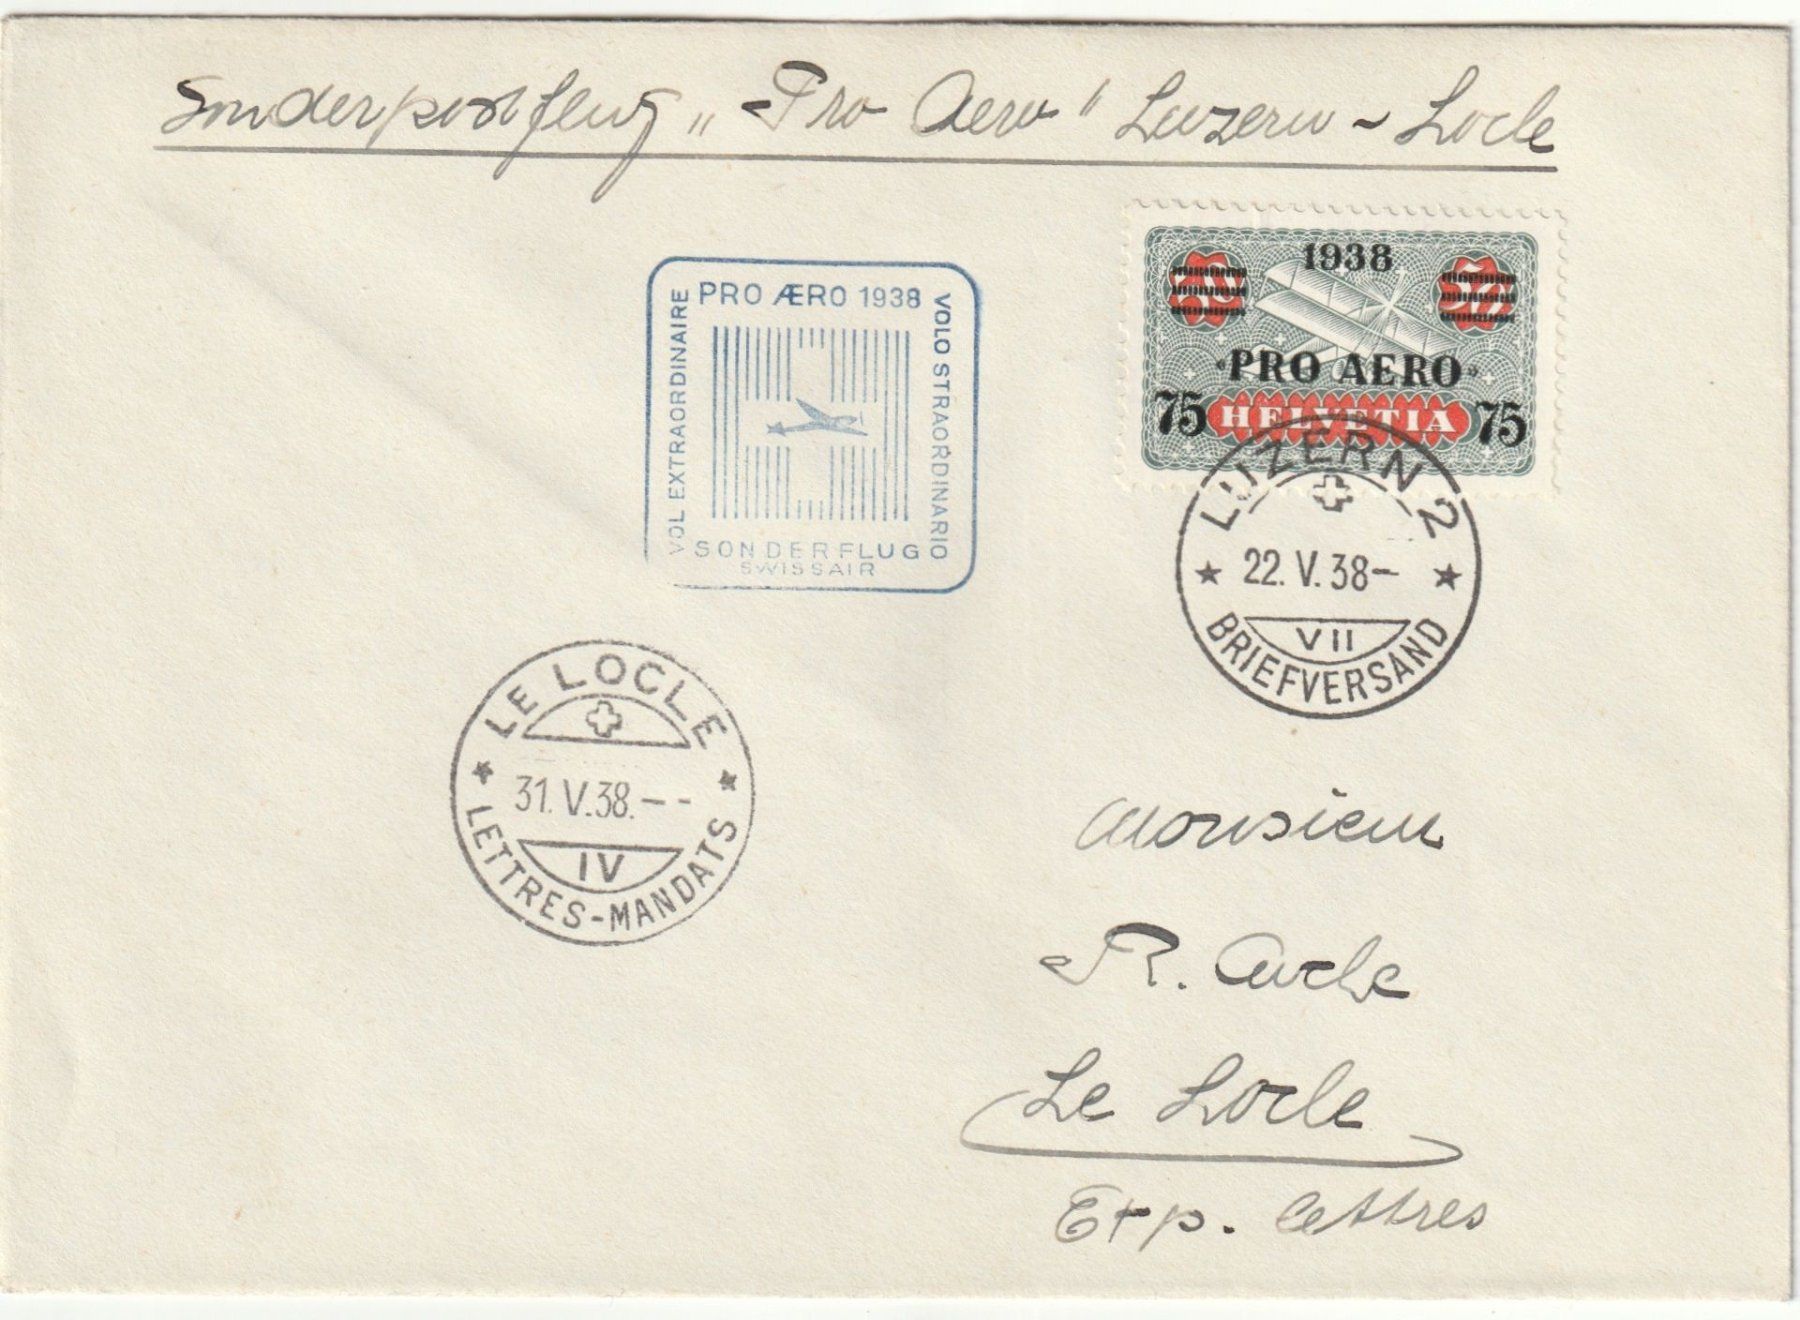 Sonderpostflug „Pro Aero" Luzern - Locle
1938
50 50
«PRO AERO»
75 HELVETIA 75
PRO ÆRO 1938
VOL EXTRAORDINAIRE
VOLO STRAORDINARIO
SONDERFLUG
SWISSAIR
LUZERN 2
22. V. 38-
VII
BRIEFVERSAND
LE LOCLE
31. V. 38.--
IV
LETTRES-MANDATS
Monsieur
R.
Le Locle
Exp. lettres